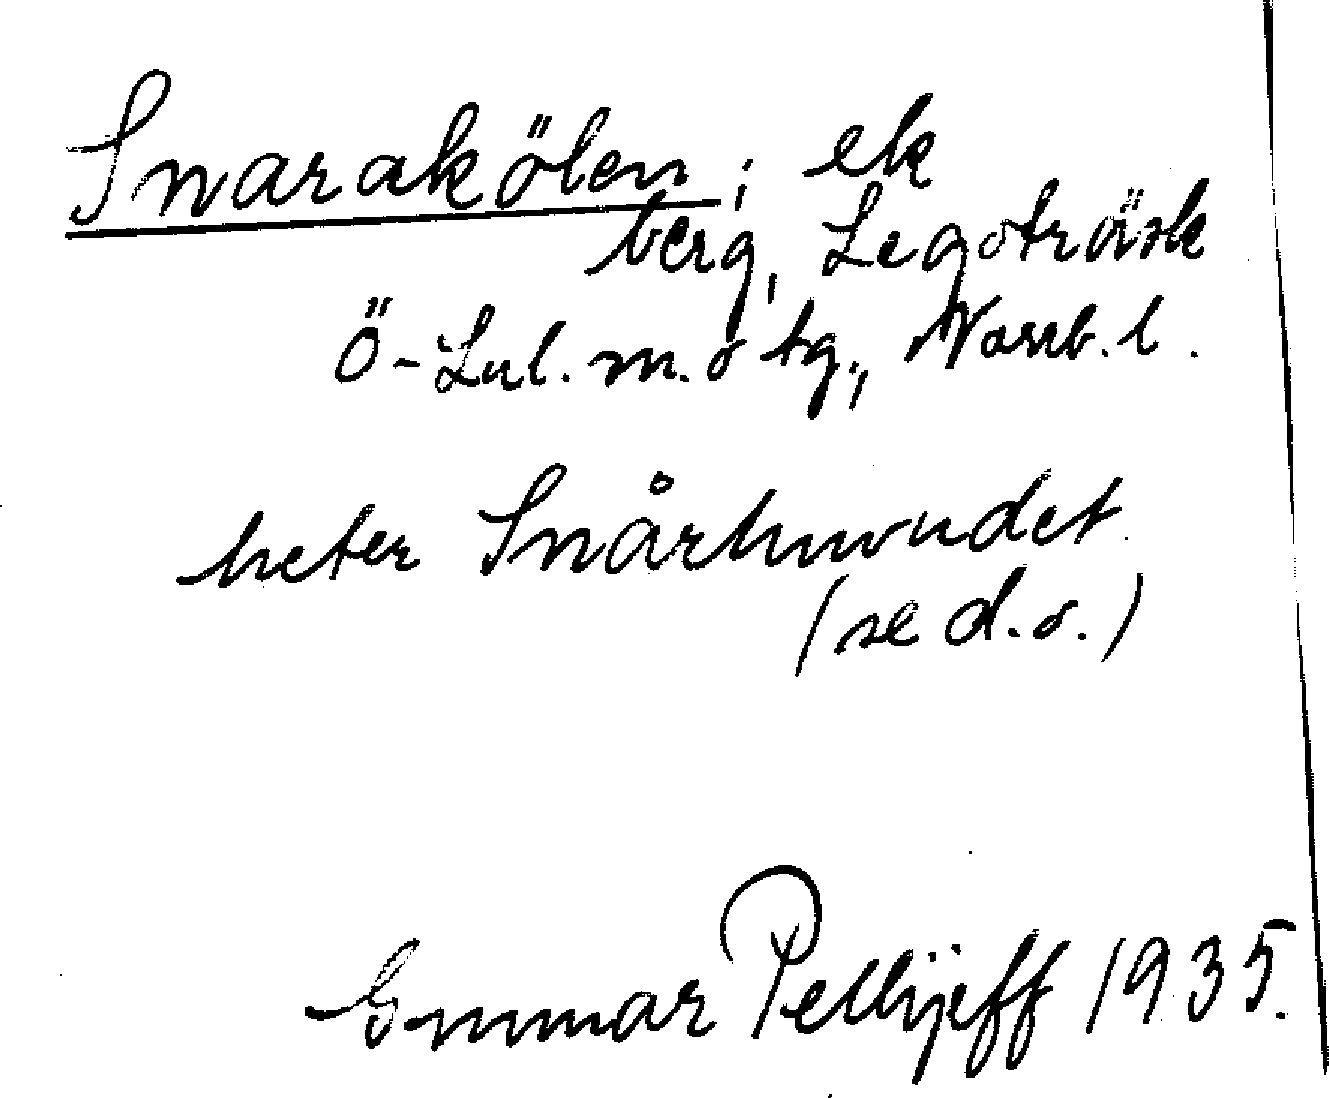 Snarakölen; ek
berg, Legoträsk
Ö-Lul. m. o tg., Norrb. l.
heter Snårhuvudet
(se d.o.)
Gunnar Pellijeff 1935.